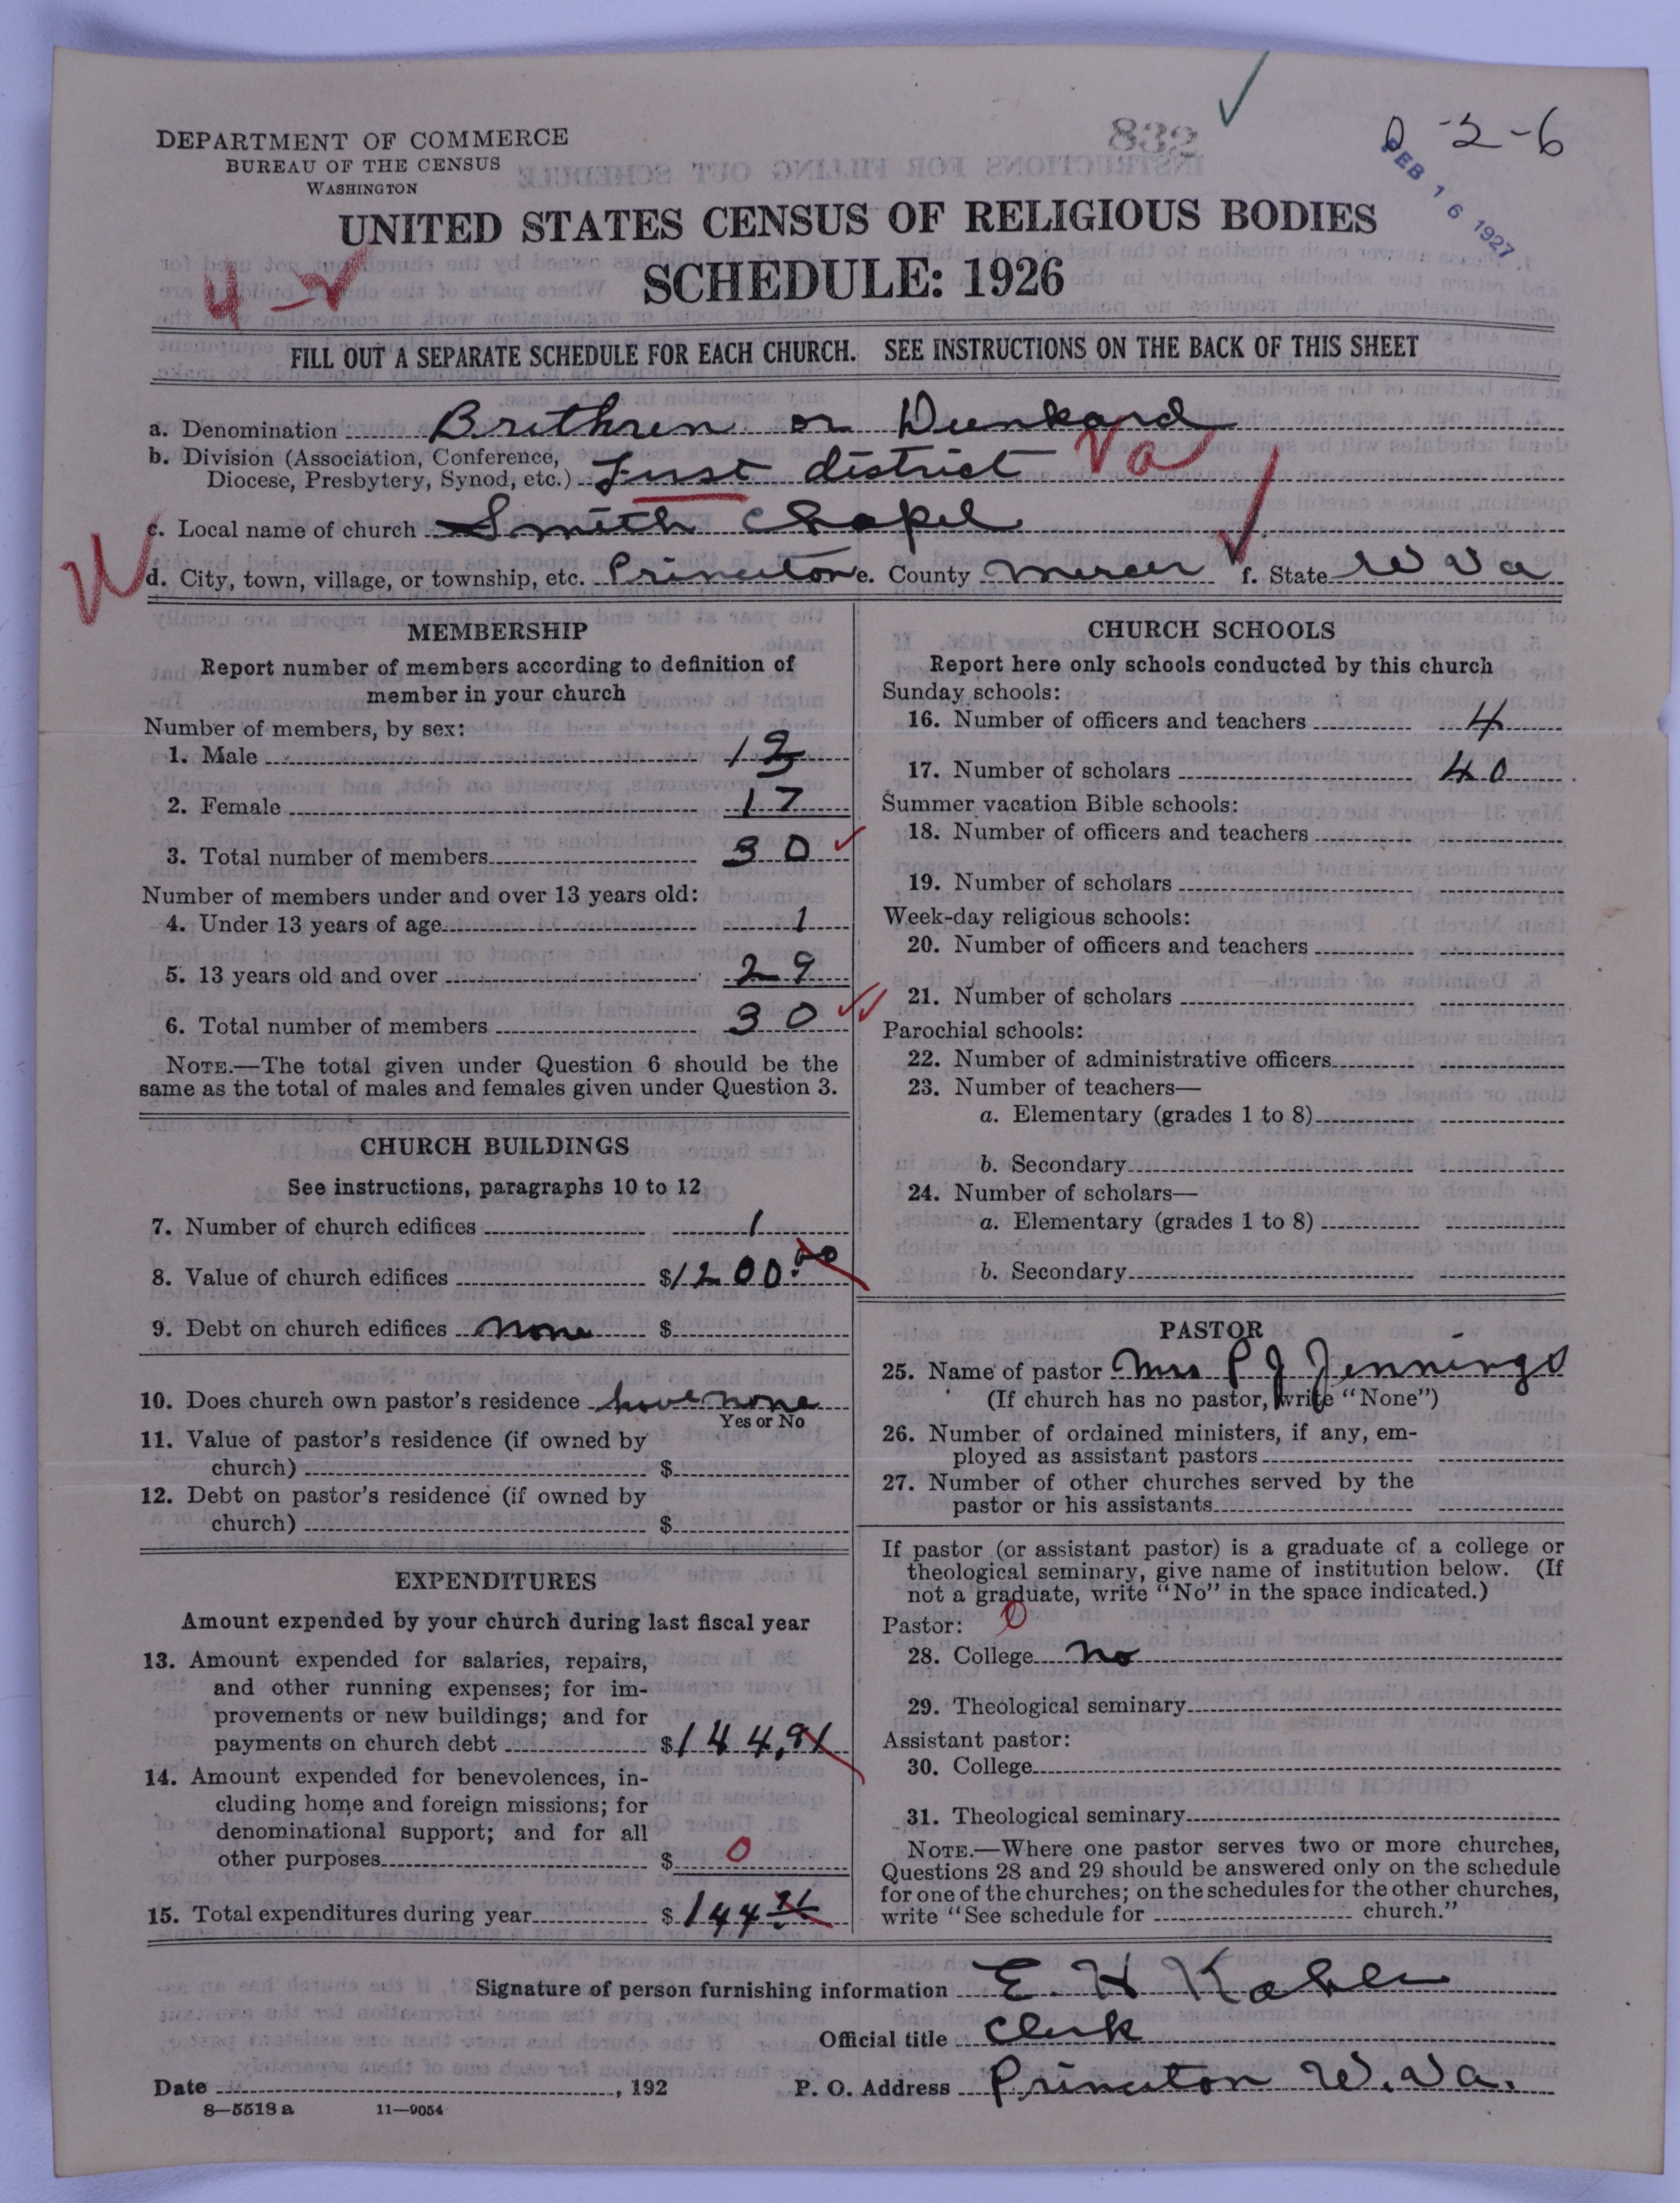 832
0-2-6
FEB 16 1927
DEPARTMENT OF COMMERCE
BUREAU OF THE CENSUS
WASHINGTON
UNITED STATES CENSUS OF RELIGIOUS BODIES
SCHEDULE: 1926
FILL OUT A SEPARATE SCHEDULE FOR EACH CHURCH. SEE INSTRUCTIONS ON THE BACK OF THIS SHEET
a. Denomination Brethren or Dunkard
b. Division (Association, Conference,
Diocese, Presbytery, Synod, etc.) First district Va
c. Local name of church Smith Chapel
d. City, town, village, or township, etc. Princeton e. County Mercer f. State W Va
MEMBERSHIP
Report number of members according to definition of
member in your church
Number of members, by sex:
1. Male 13
2. Female 17
3. Total number of members 30
Number of members under and over 13 years old:
4. Under 13 years of age 1
5. 13 years old and over 29
6. Total number of members 30
NOTE.—The total given under Question 6 should be the
same as the total of males and females given under Question 3.
CHURCH BUILDINGS
See instructions, paragraphs 10 to 12
7. Number of church edifices 1
8. Value of church edifices $1200.00
9. Debt on church edifices none $
10. Does church own pastor's residence have none
Yes or No
11. Value of pastor's residence (if owned by
church) $
12. Debt on pastor's residence (if owned by
church) $
EXPENDITURES
Amount expended by your church during last fiscal year
13. Amount expended for salaries, repairs,
and other running expenses; for im-
provements or new buildings; and for
payments on church debt $144,91
14. Amount expended for benevolences, in-
cluding home and foreign missions; for
denominational support; and for all
other purposes $ 0
15. Total expenditures during year $144
CHURCH SCHOOLS
Report here only schools conducted by this church
Sunday schools:
16. Number of officers and teachers 4
17. Number of scholars 40
Summer vacation Bible schools:
18. Number of officers and teachers
19. Number of scholars
Week-day religious schools:
20. Number of officers and teachers
21. Number of scholars
Parochial schools:
22. Number of administrative officers
23. Number of teachers—
a. Elementary (grades 1 to 8)
b. Secondary
24. Number of scholars—
a. Elementary (grades 1 to 8)
b. Secondary
PASTOR
25. Name of pastor Mrs P J Jennings
(If church has no pastor, write "None")
26. Number of ordained ministers, if any, em-
ployed as assistant pastors
27. Number of other churches served by the
pastor or his assistants
If pastor (or assistant pastor) is a graduate of a college or
theological seminary, give name of institution below. (If
not a graduate, write "No" in the space indicated.)
Pastor: 0
28. College no
29. Theological seminary
Assistant pastor:
30. College
31. Theological seminary
NOTE.—Where one pastor serves two or more churches,
Questions 28 and 29 should be answered only on the schedule
for one of the churches; on the schedules for the other churches,
write "See schedule for church."
Signature of person furnishing information E. H Kahle
Official title Clerk
Date , 192 P. O. Address Princeton W. Va.
8—5518 a 11—9054